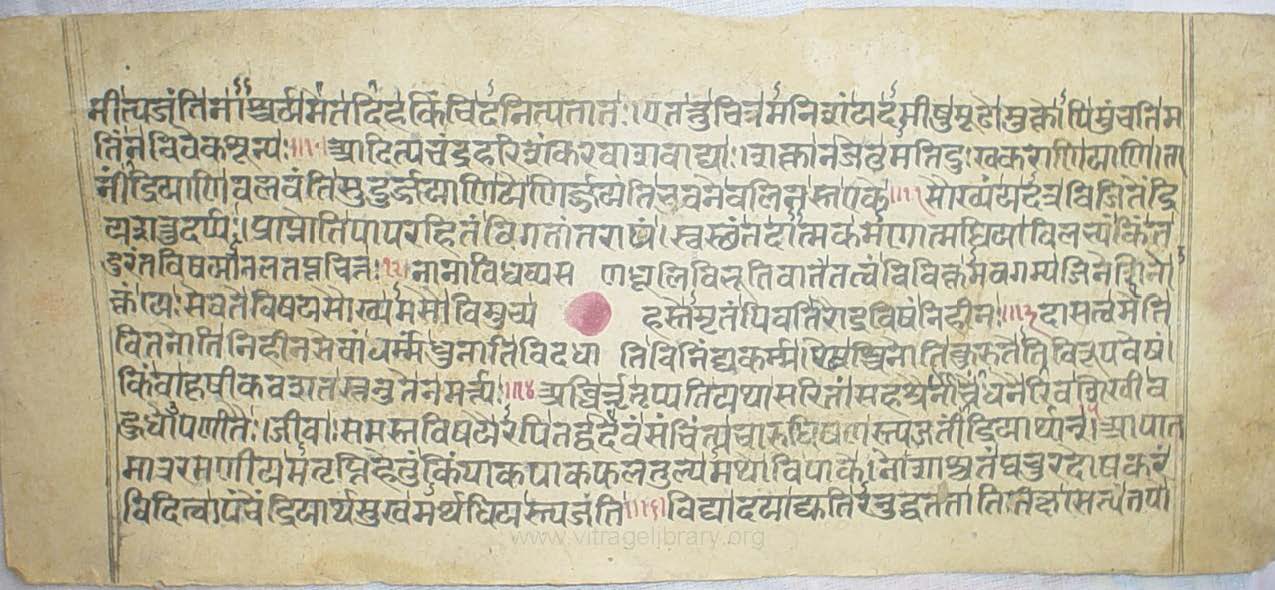 मी त्यजंति नाश्चर्यमेतदिह किंचिदनित्यतातः। एतत्तु चित्रमनिशं यदमीषु मूढो मुक्तोपि मुंचति म
तिं न विवेकशून्यः॥११॥ आदित्यचंद्रहरिशंकरवासवाद्याः। शक्ता न जेतुमतिदुःखकराणि यानि। ता
नींद्रियाणि बलवंति सुदुर्जयाणि ये निर्ज्जयंति भुवने बलिनस्त एके॥१२॥ सौख्यं यदत्र विजितेंद्रि
यशत्रुदर्प्पः। प्राप्नोति पापरहितं विगतांतरायं। स्वस्थं तदात्मकमणात्मधिया विलभ्यं किं त
दुरंतविषयानलतप्तचित्तः॥१३॥ नानाविध णधूलिविभूतिवातै तत्त्वं विविक्तमवगम्य जिनेशिनो
क्तं यः सेवते विषयसौख्यमसौ विमुच्य हस्तेमृतं पिबति रौद्रविषं निहीनः॥१३॥ दासत्वमेति
वितनोति निहीनसेवां धर्म्मं धुनाति विदधाति विनिंद्यकर्म्म। रेफश्चिनोति कुरुतेतिविरूपवेषं।
किं वा हृषीकवशतस्तनुते न मर्त्यः॥१४॥ अब्धिर्न तृप्यति यथा सरितां सहस्रैर्नो चेंधनैरिव शिखी ब
हुधोपनीतैः। जीवः समस्तविषयैरपि तद्वदेवं संचिंत्य चारुधिषणस्त्यजतींद्रियार्थान्॥१५॥ आपात
मात्ररमणीयमतृप्तिहेतुं किंपाकपाकफलतुल्यमथो विपाके। नो शाश्वतं प्रचुरदोषकरं
विदित्वा पंचेंद्रियार्थसुखमर्थधियस्त्यजंति॥१६॥ विद्या दया द्युतिरनुद्धतता तितिक्षा सत्यं तपो
www.vitragelibrary.org